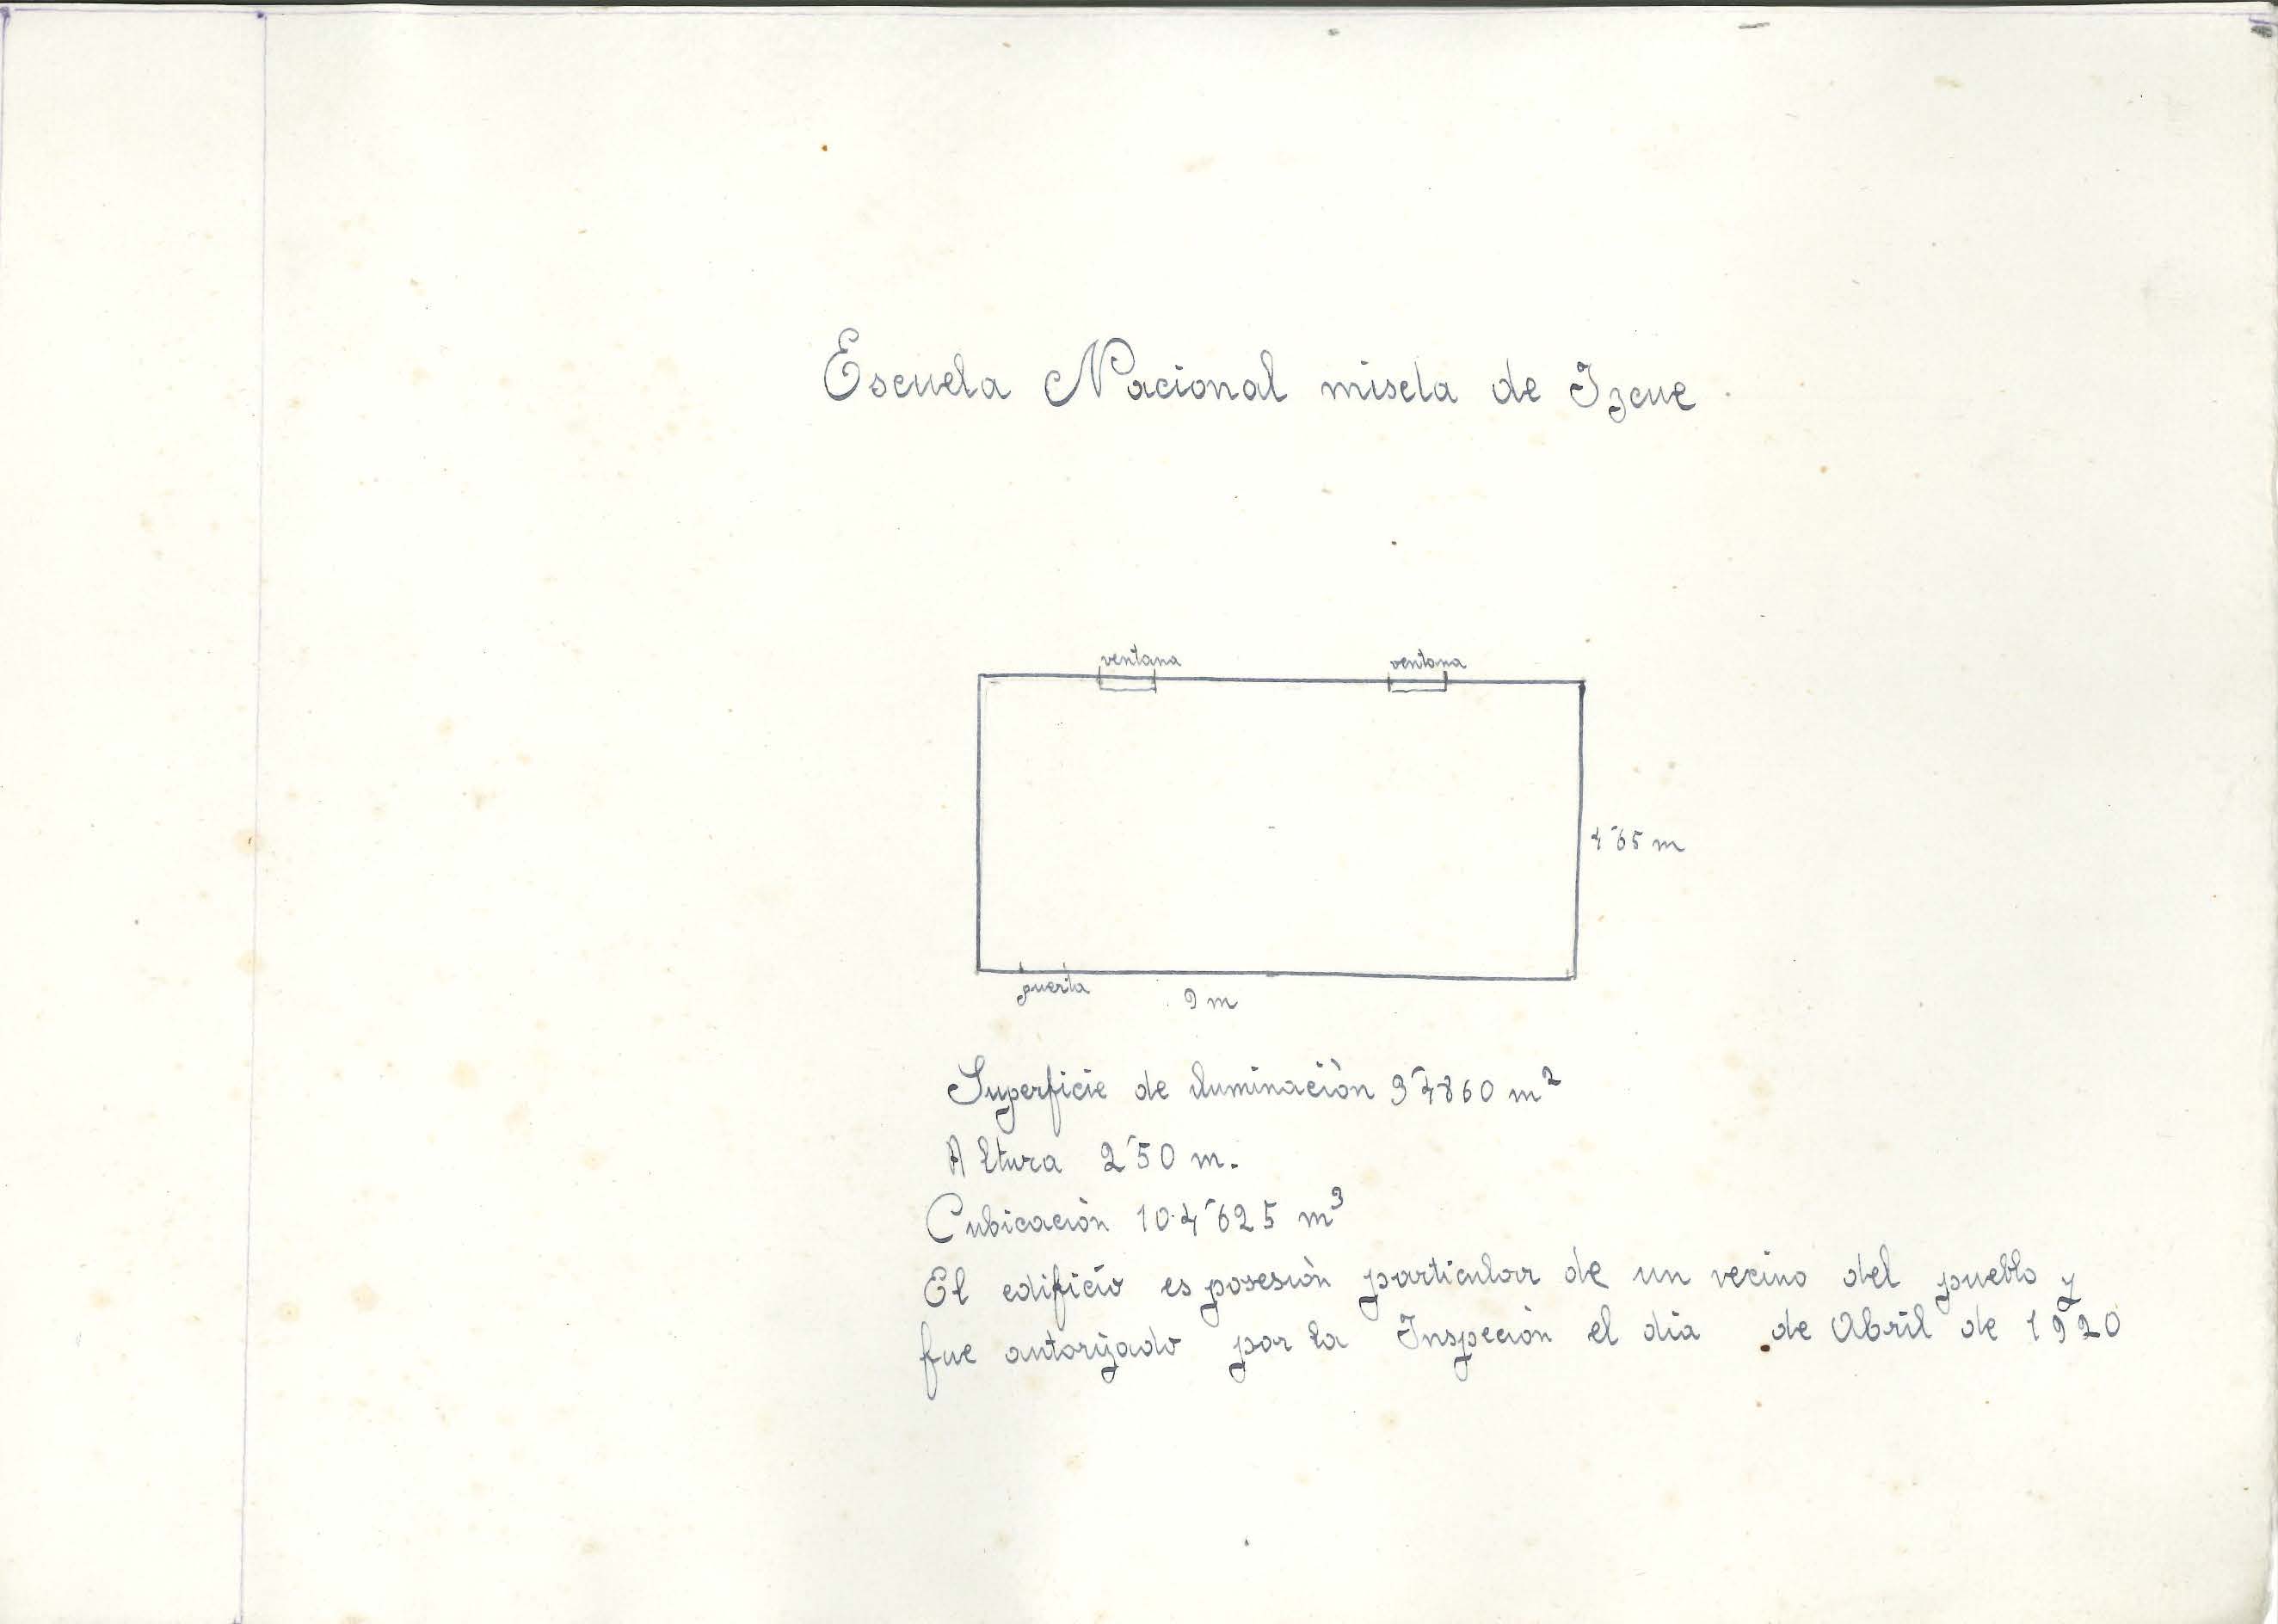 Escuela Nacional mixta de Izcue
ventana ventana
4'65 m
puerta 9 m
Superficie de iluminación 3'4860 m²
Altura 2'50 m.
Cubicación 104'625 m³
El edificio es posesión particular de un vecino del pueblo y
fue autorizado por la Inspeción el dia de Abril de 1920